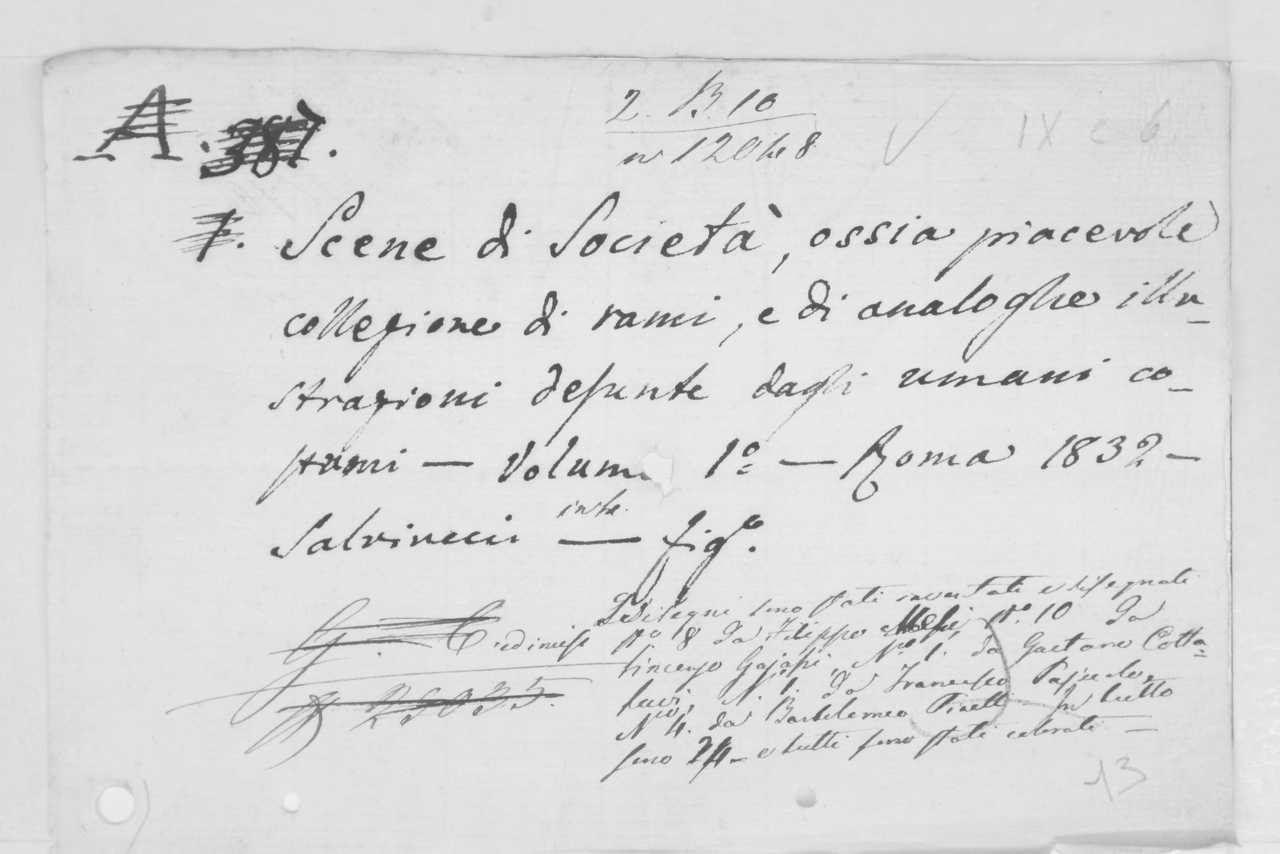 A. 387.
2. B. 10
12048
IX c 6
7. Scene di Società, ossia piacevole
collezione di rami, e di analoghe illu-
strazioni desunte dagli umani co-
stumi — Volum 1º — Roma 1832 —
Salviucci in 12. — figº.
I Disegni sono stati inventati e disegnati
Nº 8 da Filippo Nº. 10 da
Vincenzo Gajassi, Nº 1. da Gaetano Cotta-
favi, N. 1. da Francesco
N 4. da Bartolomeo Pinelli In tutto
sono 24 — e tutti sono stati
13